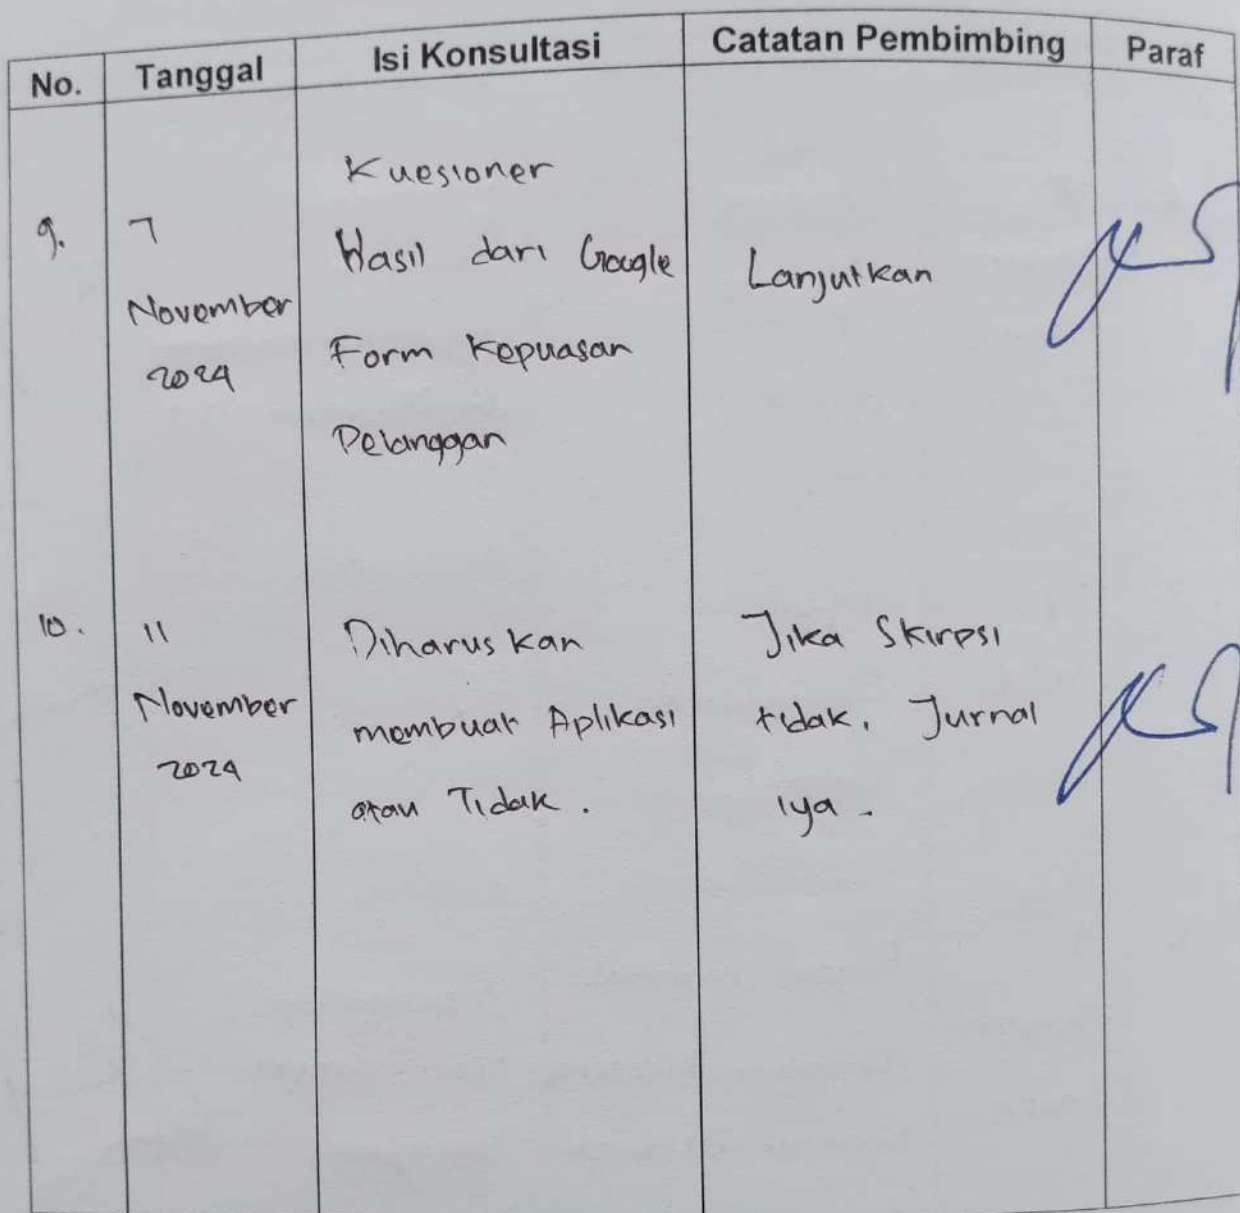 No. Tanggal Isi Konsultasi Catatan Pembimbing Paraf
9.
7
November
2024
Kuesioner
Hasil dari Google
Form Kepuasan
Pelanggan
Lanjutkan
10.
11
November
2024
Diharuskan
membuat Aplikasi
atau Tidak.
Jika Skirpsi
tidak. Jurnal
iya.